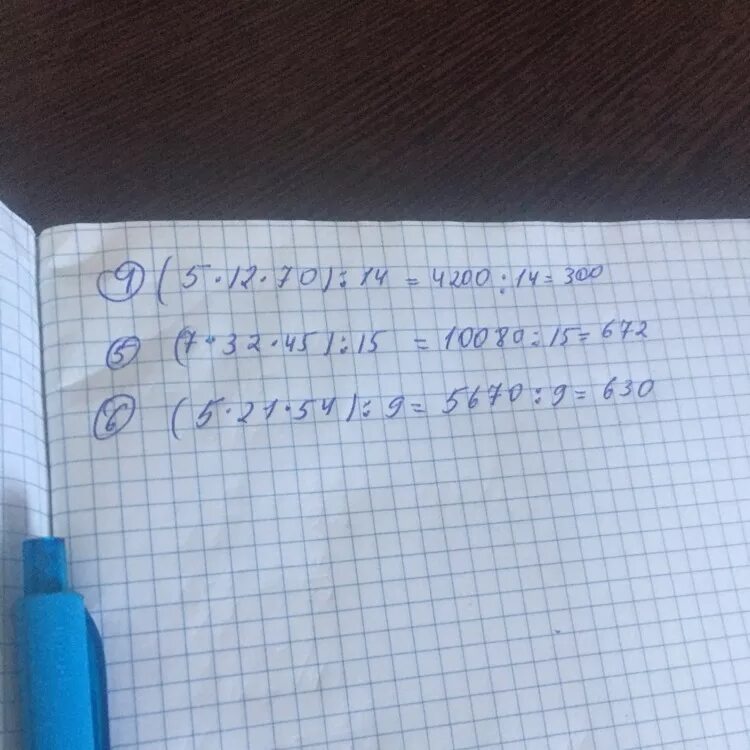 ④ (5·12·70):14 = 4200:14=300
⑤ (7·32·45):15 = 10080:15=672
⑥ (5·21·54):9= 5670:9=630